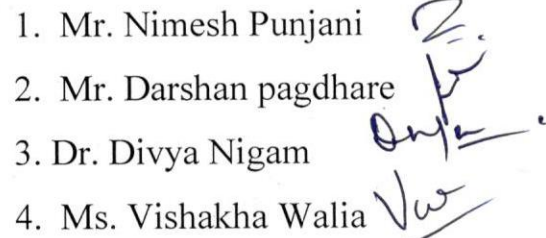 1. Mr. Nimesh Punjani
2. Mr. Darshan pagdhare
3. Dr. Divya Nigam
4. Ms. Vishakha Walia